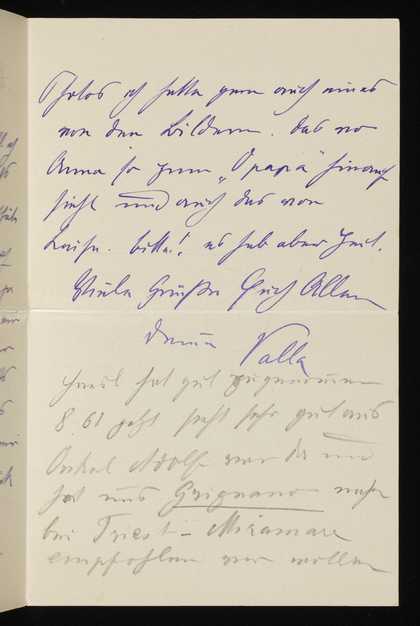 Photos ich hätte gern auch eines
von den Bildern. das wo
Anna so zum „Opapa" hinauf
sieht und auch das von
Luise. bitte! es hat aber Zeit.
Viele Grüße Euch Allen
Deine Valla
hat gut zugenommen
8.61 jetzt sieht sehr gut aus
Onkel Adolf war da und
hat uns Grignano nahe
bei Triest - Miramare
empfohlen wir wollen